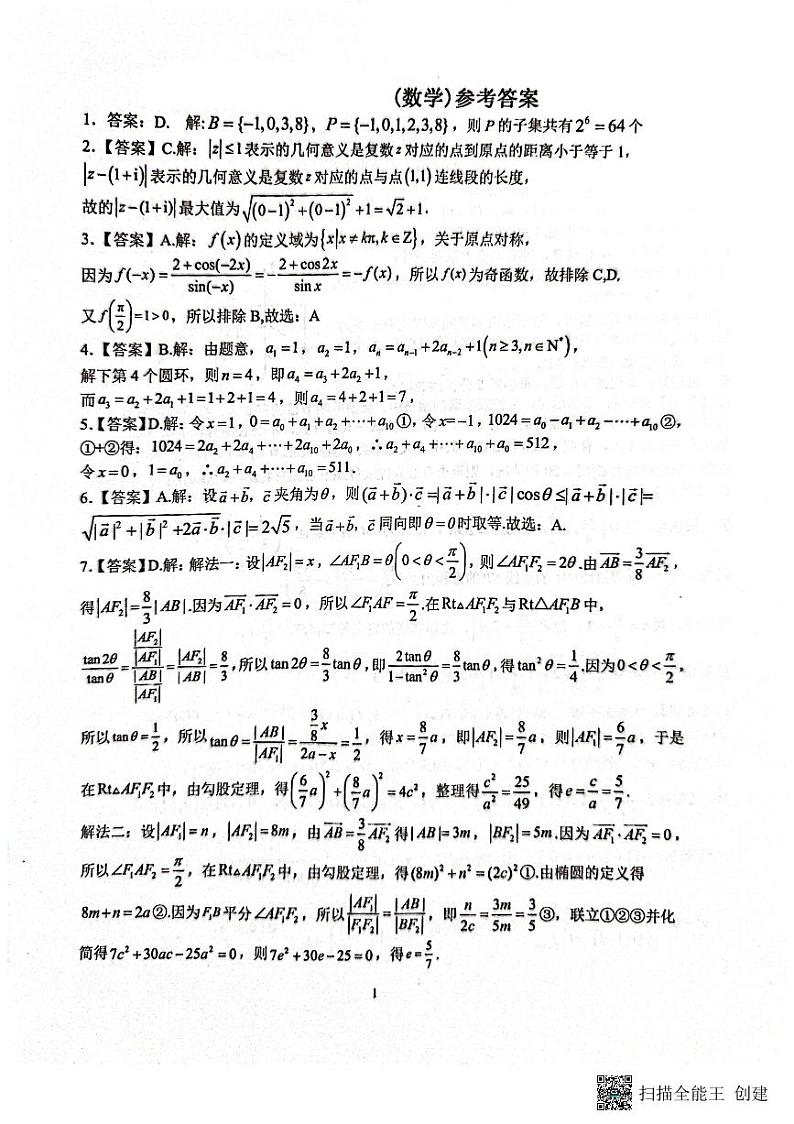 (数学)参考答案
1. 答案：D. 解：B = {-1,0,3,8}，P = {-1,0,1,2,3,8}，则 P 的子集共有 2⁶ = 64 个
2.【答案】C.解：|z| ≤ 1 表示的几何意义是复数 z 对应的点到原点的距离小于等于 1，
|z-(1+i)| 表示的几何意义是复数 z 对应的点与点 (1,1) 连线段的长度，
故的 |z-(1+i)| 最大值为 √((0-1)²+(0-1)²)+1=√2+1.
3.【答案】A.解：f(x) 的定义域为 {x|x≠kπ,k∈Z}，关于原点对称，
因为 f(-x) = (2+cos(-2x))/sin(-x) = -(2+cos2x)/sin x = -f(x)，所以 f(x) 为奇函数，故排除 C,D,
又 f(π/2)=1>0，所以排除 B,故选：A
4.【答案】B.解：由题意，a₁=1，a₂=1，aₙ=aₙ₋₁+2aₙ₋₂+1(n≥3,n∈N*)，
解下第 4 个圆环，则 n=4，即 a₄=a₃+2a₂+1，
而 a₃=a₂+2a₁+1=1+2+1=4，则 a₄=4+2+1=7，
5.【答案】D.解：令 x=1，0=a₀+a₁+a₂+⋯+a₁₀①，令 x=-1，1024=a₀-a₁+a₂-⋯+a₁₀②，
①+②得：1024=2a₂+2a₄+⋯+2a₁₀+2a₀，∴a₂+a₄+⋯+a₁₀+a₀=512，
令 x=0，1=a₀，∴a₂+a₄+⋯+a₁₀=511.
6.【答案】A.解：设 a⃗+b⃗，c⃗ 夹角为 θ，则 (a⃗+b⃗)·c⃗=|a⃗+b⃗|·|c⃗|cosθ≤|a⃗+b⃗|·|c⃗|=
√(|a⃗|²+|b⃗|²+2a⃗·b⃗)·|c⃗|=2√5，当 a⃗+b⃗，c⃗ 同向即 θ=0 时取等.故选：A.
7.【答案】D.解：解法一：设 |AF₂|=x，∠AF₁B=θ(0<θ<π/2)，则 ∠AF₁F₂=2θ.由 AB⃗=3/8 AF₂⃗，
得 |AF₂|=8/3|AB|.因为 AF₁⃗·AF₂⃗=0，所以 ∠F₁AF=π/2.在 Rt△AF₁F₂ 与 Rt△AF₁B 中，
tan2θ/tanθ=(|AF₂|/|AF₁|)/(|AB|/|AF₁|)=|AF₂|/|AB|=8/3，所以 tan2θ=8/3 tanθ，即 2tanθ/(1-tan²θ)=8/3 tanθ，得 tan²θ=1/4.因为 0<θ<π/2，
所以 tanθ=1/2，所以 tanθ=|AB|/|AF₁|=(3/8 x)/(2a-x)=1/2，得 x=8/7 a，即 |AF₂|=8/7 a，则 |AF₁|=6/7 a，于是
在 Rt△AF₁F₂ 中，由勾股定理，得 (6/7 a)²+(8/7 a)²=4c²，整理得 c²/a²=25/49，得 e=c/a=5/7.
解法二：设 |AF₁|=n，|AF₂|=8m，由 AB⃗=3/8 AF₂⃗ 得 |AB|=3m，|BF₂|=5m.因为 AF₁⃗·AF₂⃗=0，
所以 ∠F₁AF₂=π/2，在 Rt△AF₁F₂ 中，由勾股定理，得 (8m)²+n²=(2c)²①.由椭圆的定义得
8m+n=2a②.因为 F₁B 平分 ∠AF₁F₂，所以 |AF₁|/|F₁F₂|=|AB|/|BF₂|，即 n/2c=3m/5m=3/5③，联立①②③并化
简得 7c²+30ac-25a²=0，则 7e²+30e-25=0，得 e=5/7.
1
扫描全能王 创建